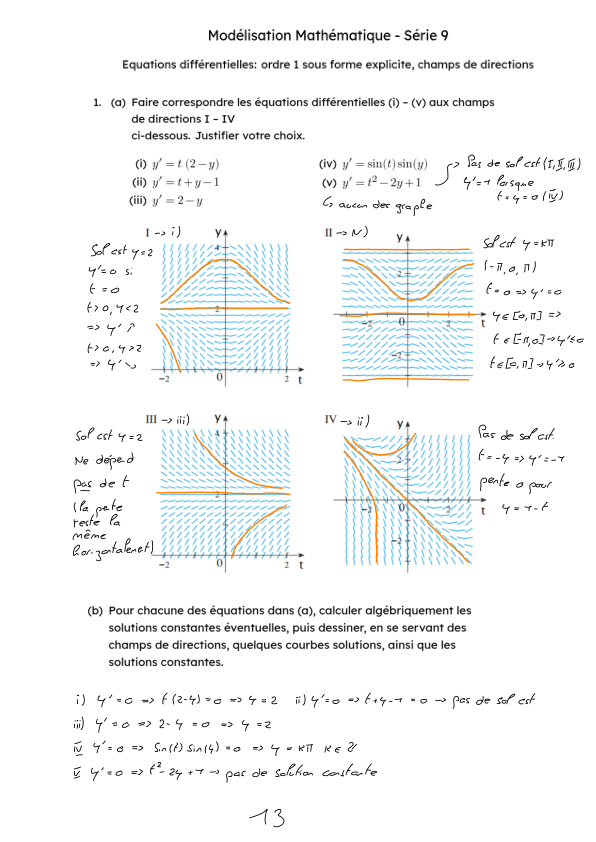 Modélisation Mathématique - Série 9
Equations différentielles: ordre 1 sous forme explicite, champs de directions
1. (a) Faire correspondre les équations différentielles (i) – (v) aux champs
de directions I – IV
ci-dessous. Justifier votre choix.
(i) y′ = t (2 − y)
(ii) y′ = t + y − 1
(iii) y′ = 2 − y
(iv) y′ = sin(t) sin(y)
(v) y′ = t² − 2y + 1
↳ aucun des graphe
→ Pas de sol cst (I, II, III)
y' = 1 lorsque
t = y = 0 (IV)
I → i)
Sol cst y = 2
y' = 0 si
t = 0
t > 0, y < 2
=> y' ↗
t > 0, y > 2
=> y' ↘
y
4
2
−2
0
2 t
II → iv)
y
2
−2
0
2 t
−2
Sol cst y = kπ
(-π, 0, π)
t = 0 => y' = 0
y ∈ [0, π] =>
t ∈ [-π, 0] → y' ≤ 0
t ∈ [0, π] → y' ≥ 0
III → iii)
Sol cst y = 2
Ne dépend
pas de t
(la pente
reste la
même
horizontalement)
y
4
2
−2
0
2 t
IV → ii)
y
2
−2
0
2 t
−2
Pas de sol cst.
t = -y => y' = -1
pente 0 pour
y = 1 - t
(b) Pour chacune des équations dans (a), calculer algébriquement les
solutions constantes éventuelles, puis dessiner, en se servant des
champs de directions, quelques courbes solutions, ainsi que les
solutions constantes.
i) y' = 0 => t (2-y) = 0 => y = 2 ii) y' = 0 => t + y - 1 = 0 → pas de sol cst
iii) y' = 0 => 2 - y = 0 => y = 2
iv y' = 0 => Sin(t) Sin(y) = 0 => y = kπ k ∈ ℤ
v y' = 0 => t² - 2y + 1 → pas de solution constante
13